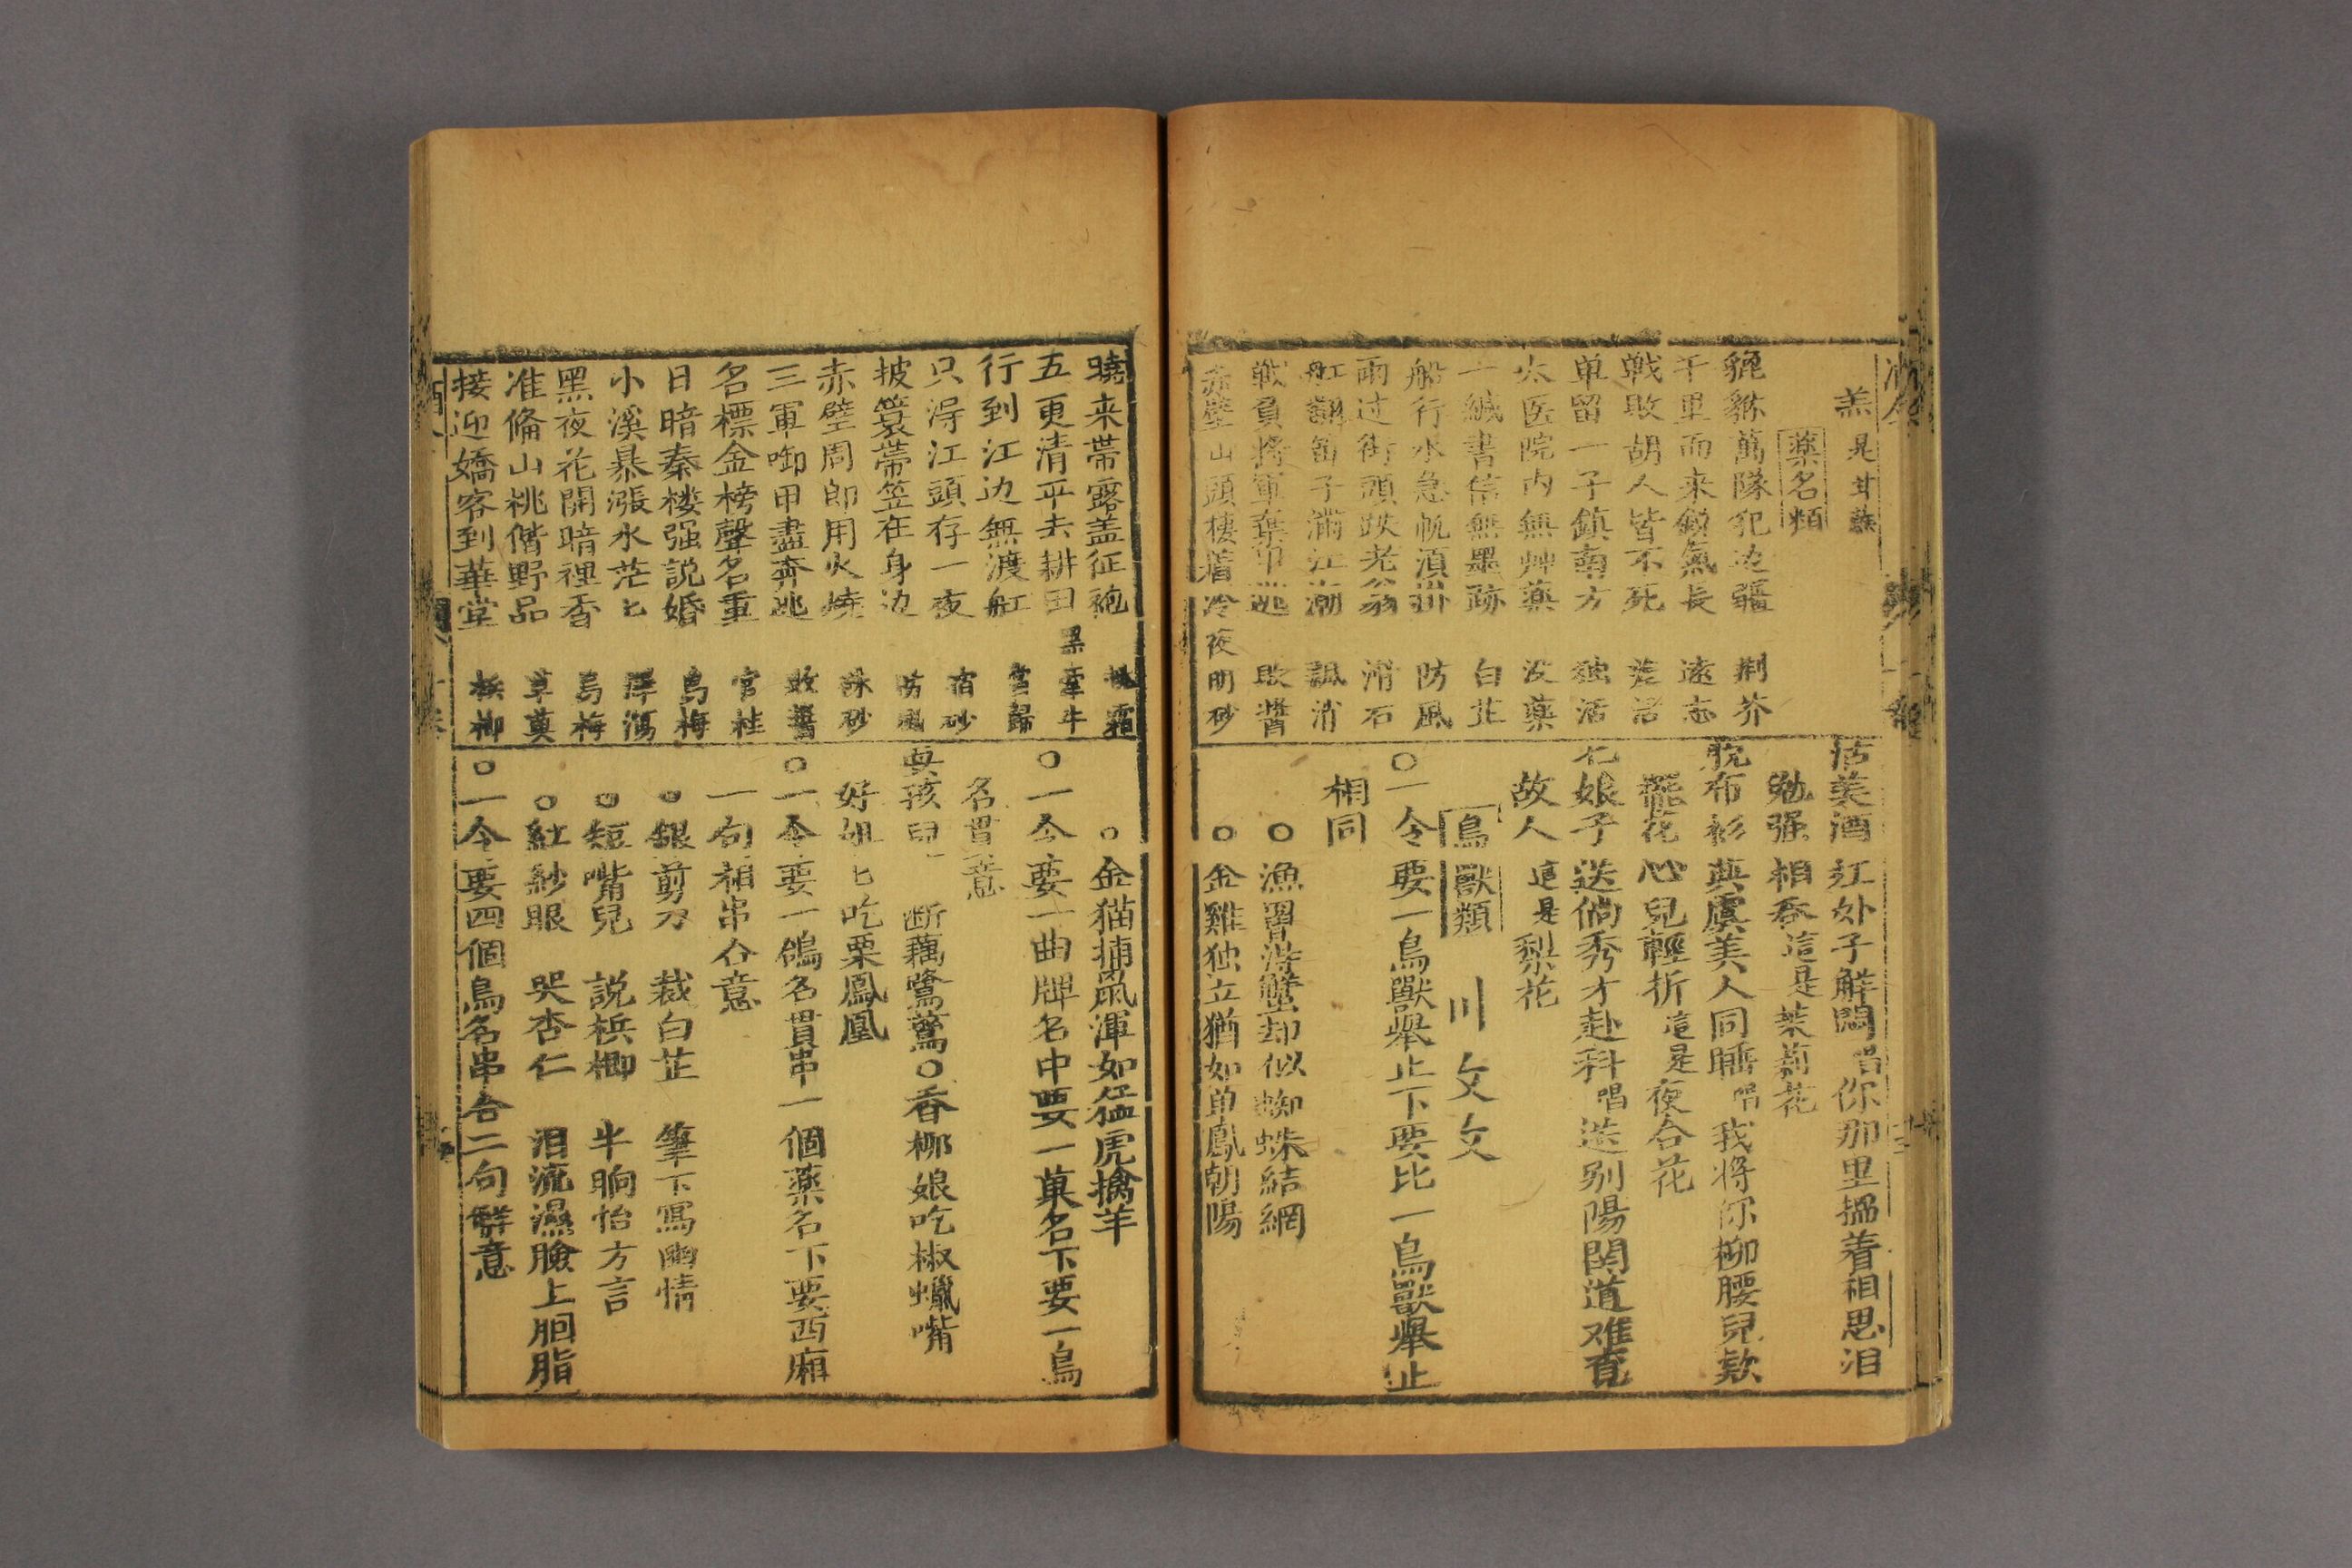 羔 是甘蔗
藥名類
貔貅萬隊犯边疆 荆芥
千里而来鋭氣長 遠志
戦敗胡人皆不死 羌活
単留一子鎮南方 独活
太医院内無艸藥 没藥
一緘書信無墨跡 白芷
船行水急帆湏掛 防風
雨过街頭跌老翁 滑石
舡翻 子滿江潮 硝
戦負將軍棄印逃 敗醬
赤壁山頭棲着冷 夜明砂
沽美酒 江外子解悶唱你那里揾着相思泪
勉强相吞這是茉莉花
脱布衫 與虞美人同睡唱我將你柳腰兒款
擺花心兒輕折這是夜合花
七娘子 送倘秀才赴科唱送别陽関道难
故人 這是梨花
鳥獸類 川文文
○一令要一鳥獸舉止下要比一鳥獸舉止
相同
○漁罾得蟹却似蜘蛛結網
○金雞独立猶如单鳳朝陽
曉来帯露盖征袍 霜
五更清平去耕田 黑牽牛
行到江边無渡舡 當歸
只淂江頭存一夜 宿砂
披簑蒂笠在身边 防風
赤壁周郎用火燒 硃砂
三軍啣甲盡奔逃 敗醬
名標金榜聲名重 官桂
日暗秦楼强説婚 烏梅
小溪暴漲水茫匕 澤瀉
黑夜花開暗裡香 烏梅
准俻山桃偕野品 草蓂
接迎嬌客到華堂 梹榔
○金猫捕鼠渾如猛虎擒羊
○一令要一曲牌名中要一菓名下要一鳥
名貫意
耍孩兒 断藕鷺鷥○香柳娘吃椒蠟嘴
好姐匕吃栗鳳凰
○一令要一鴿名貫串一個藥名下要西廂
一句相串合意
○銀剪刀 裁白芷 筆下寫幽情
○短嘴兒 説梹榔 半晌恰方言
○紅紗眼 哭杏仁 泪流濕臉上胭脂
○一令要四個鳥名串合二句解意